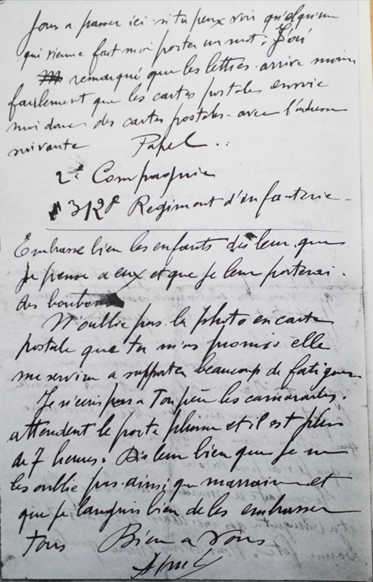 jours a passer ici si tu peux voir quelqu'un
qui vienne fait moi porter un mot. J'ai
remarqué que les lettres arrive moins
facilement que les cartes postales envoie
moi donc des cartes postales avec l'adresse
suivante Papel
2e Compagnie
312e Regiment d'infanterie
Embrasse bien les enfants dis leur que
je pense a eux et que je leur porterai
des bonbons
N'oublie pas la photo en carte
postale que tu m'as promis elle
me servira a supporter beaucoup de fatigues
Je n'ecris pas a Ton père les camarades
attendent le porte plume et il est plus
de 7 heures. Dis leur bien que je ne
les oublie pas ainsi que marraine et
que je languis bien de les embrasser
Tous Bien a vous
Aimé